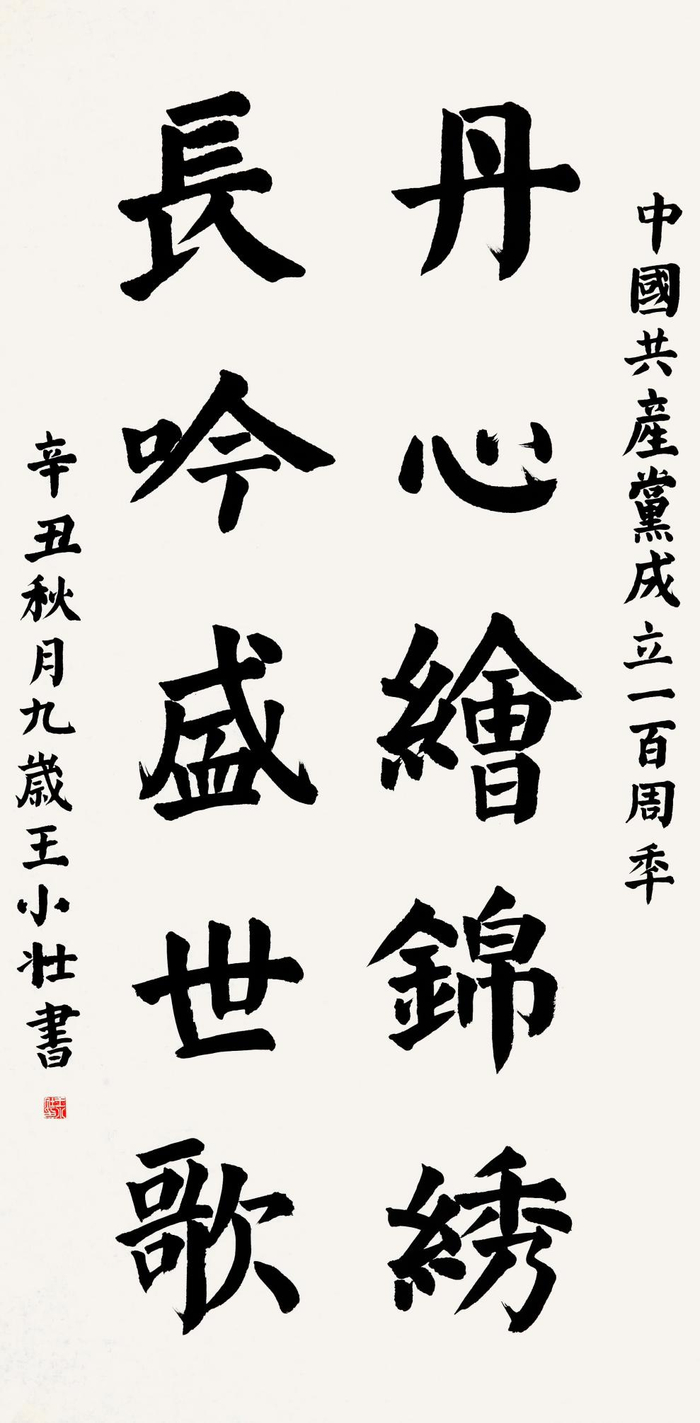 中國共産黨成立一百周年
丹心繪錦綉
長吟盛世歌
辛丑秋月九歲王小壯書